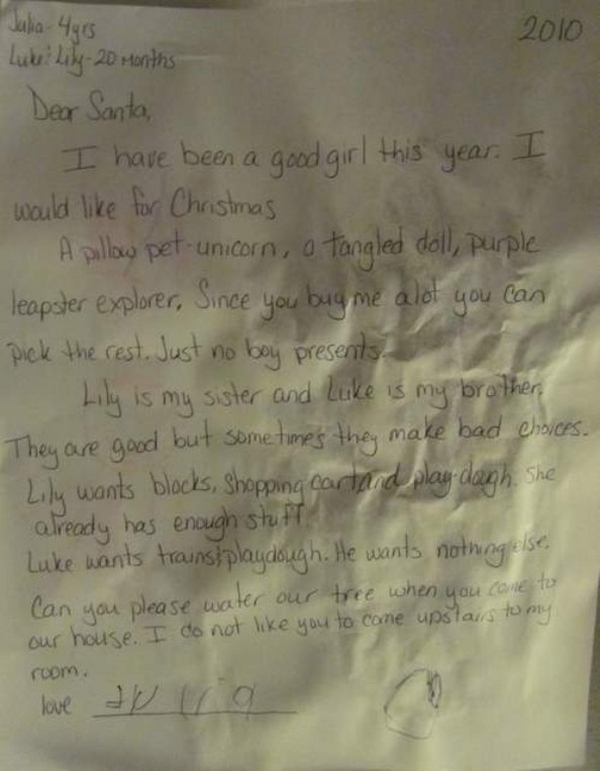 Julia - 4yrs
2010
Luke & Lily - 20 Months
Dear Santa,
I have been a good girl this year. I
would like for Christmas
A pillow pet-unicorn, a tangled doll, purple
leapster explorer. Since you buy me alot you can
pick the rest. Just no boy presents.
Lily is my sister and Luke is my brother.
They are good but sometimes they make bad choices.
Lily wants blocks, shopping cart and play-dough. She
already has enough stuff.
Luke wants trains & playdough. He wants nothing else.
Can you please water our tree when you come to
our house. I do not like you to come upstairs to my
room.
love